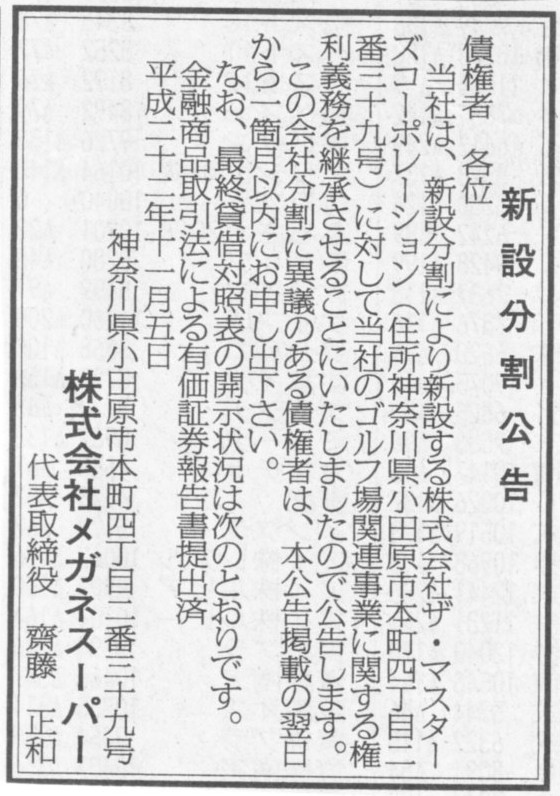 新設分割公告
債権者 各位
当社は、新設分割により新設する株式会社ザ・マスター
ズコーポレーション(住所神奈川県小田原市本町四丁目
二番三十九号)に対して当社のゴルフ場関連事業に関する権
利義務を継承させることにいたしましたので公告します。
この会社分割に異議のある債権者は、本公告掲載の翌日
から一箇月以内にお申し出下さい。
なお、最終貸借対照表の開示状況は次のとおりです。
金融商品取引法による有価証券報告書提出済
平成 年十一月五日
神奈川県小田原市本町四丁目二番三十九号
株式会社メガネスーパー
代表取締役 齋藤 正和